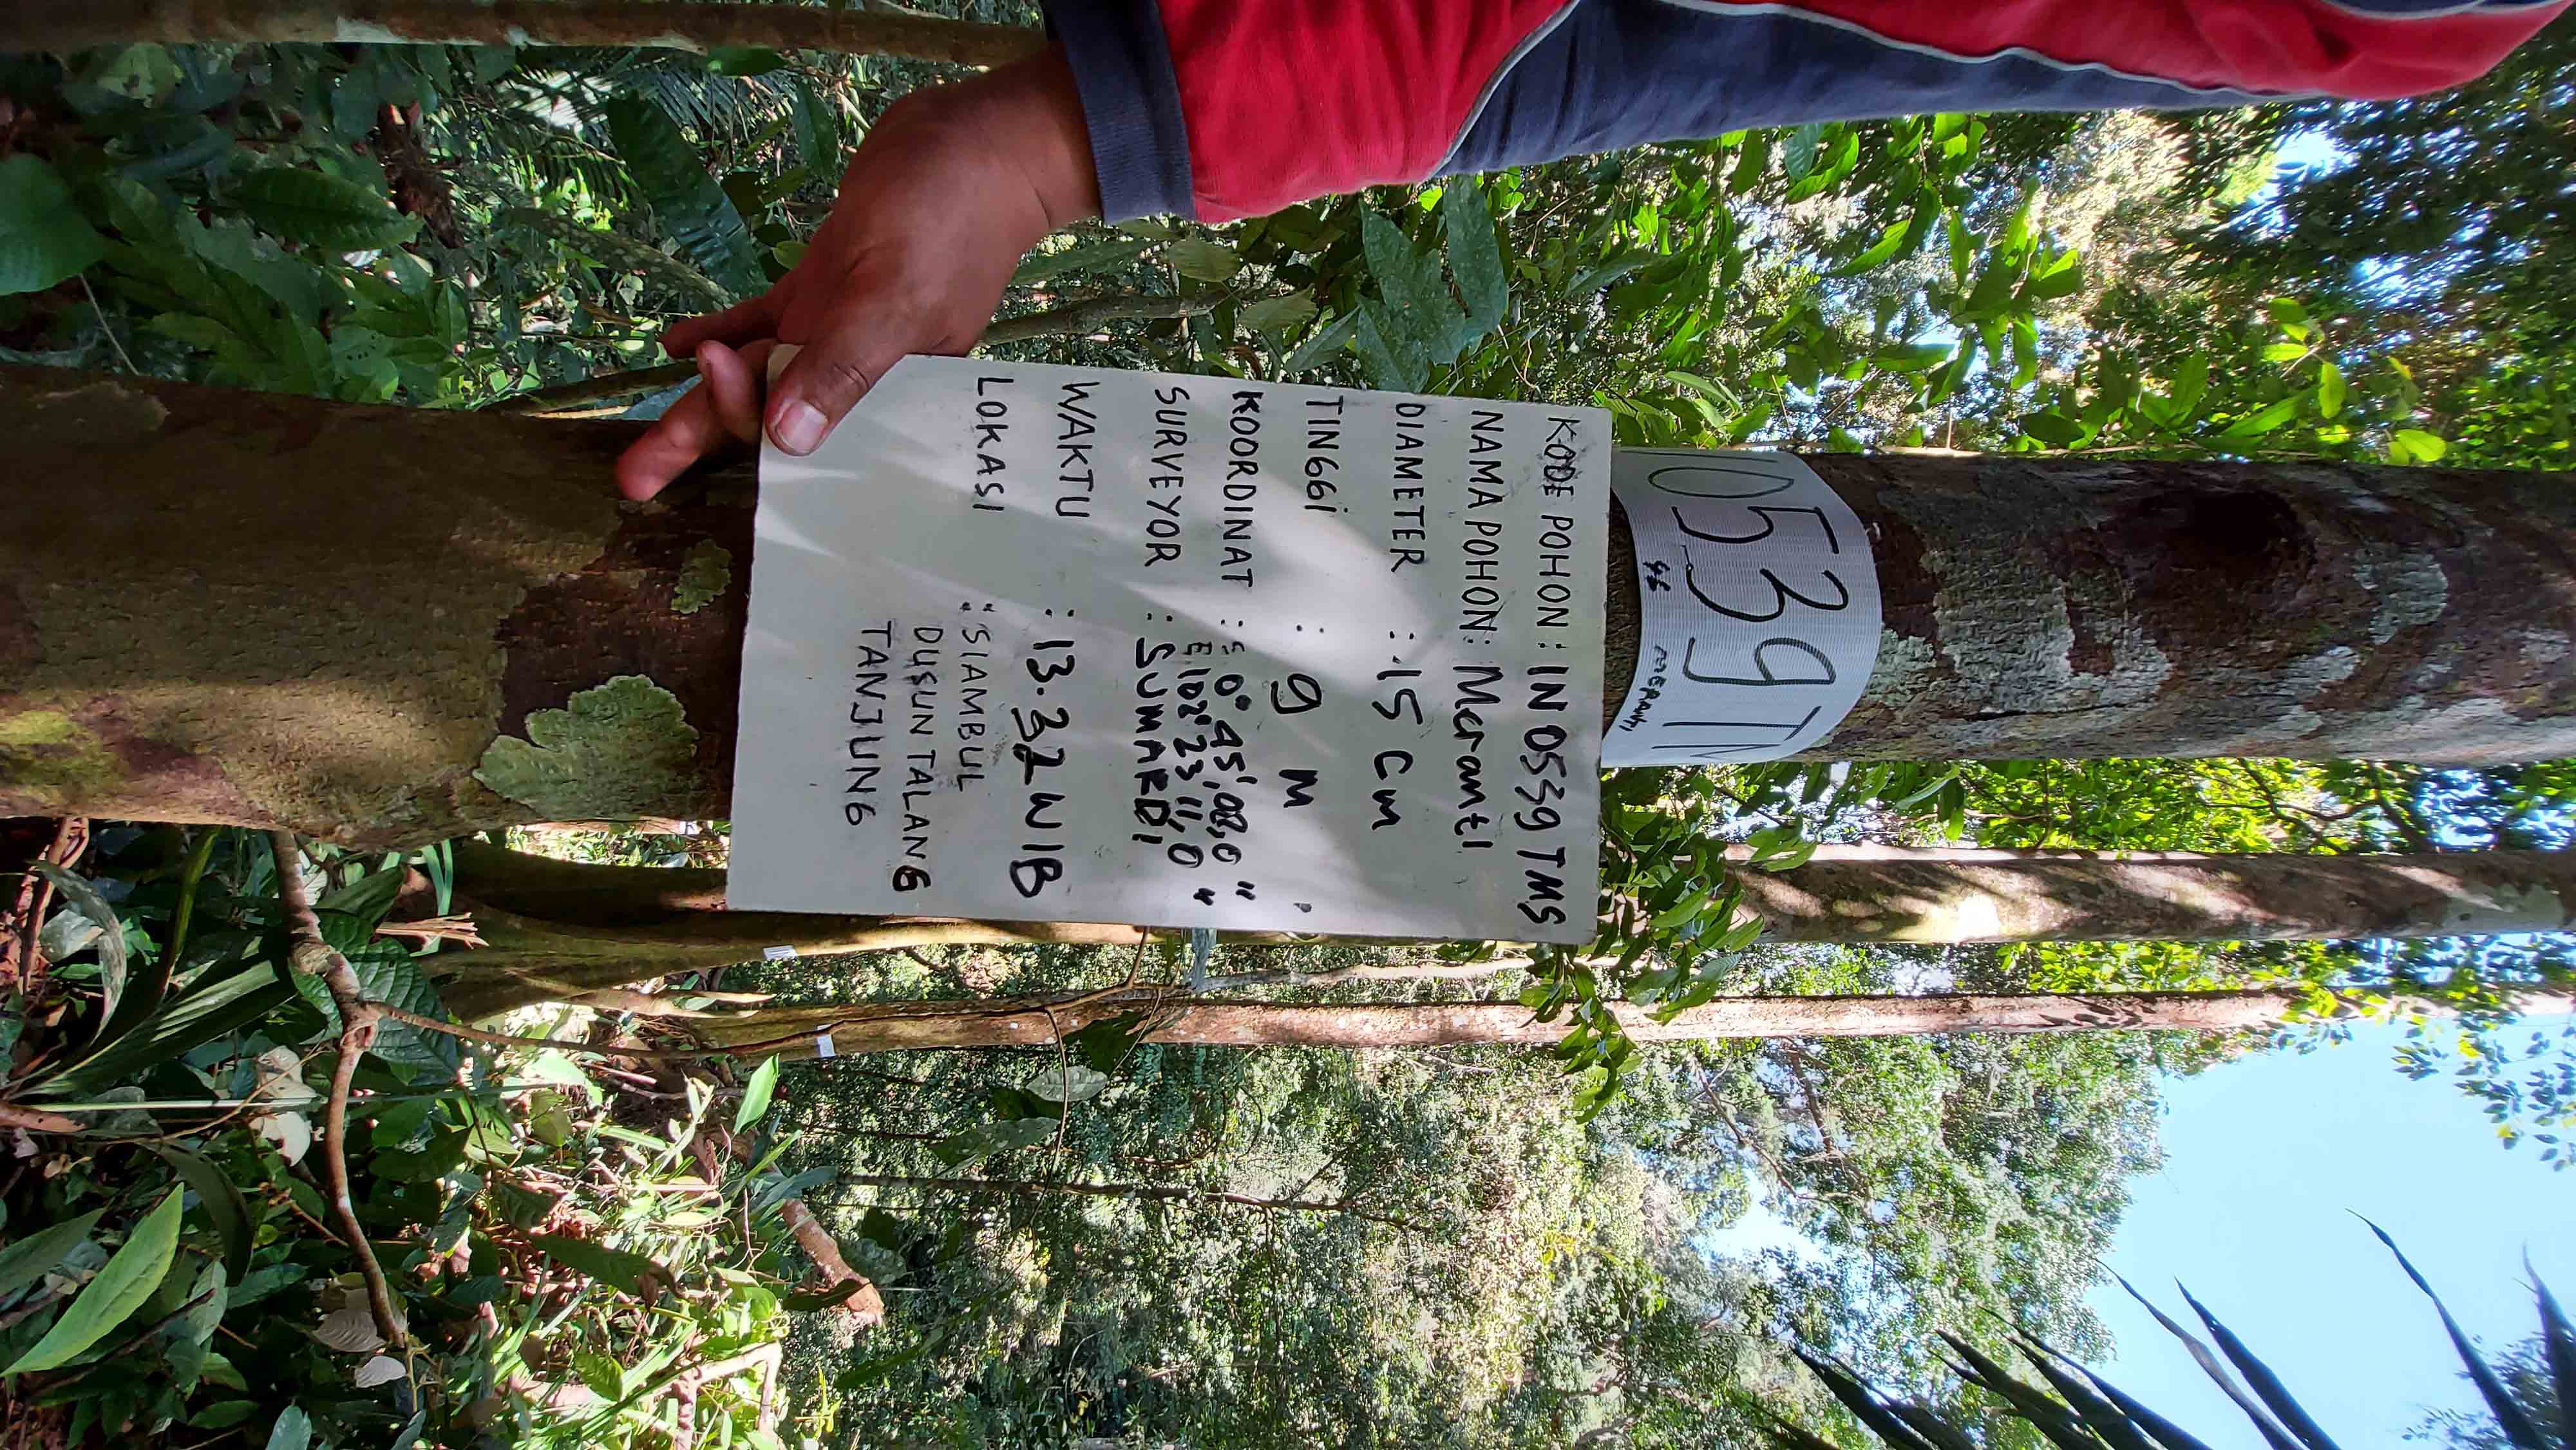 KODE POHON : IN 0539 TMS
NAMA POHON : Meranti
DIAMETER : 15 cm
TINGGi : 9 m
KOORDINAT : S 0° 45', 08,0 "
E 102° 23' 11,0 "
SURVEYOR : SUMARDI
WAKTU : 13.32 WIB
LOKASI : "SIAMBUL
DUSUN TALANG
TANJUNG
0539 T
MERANTI